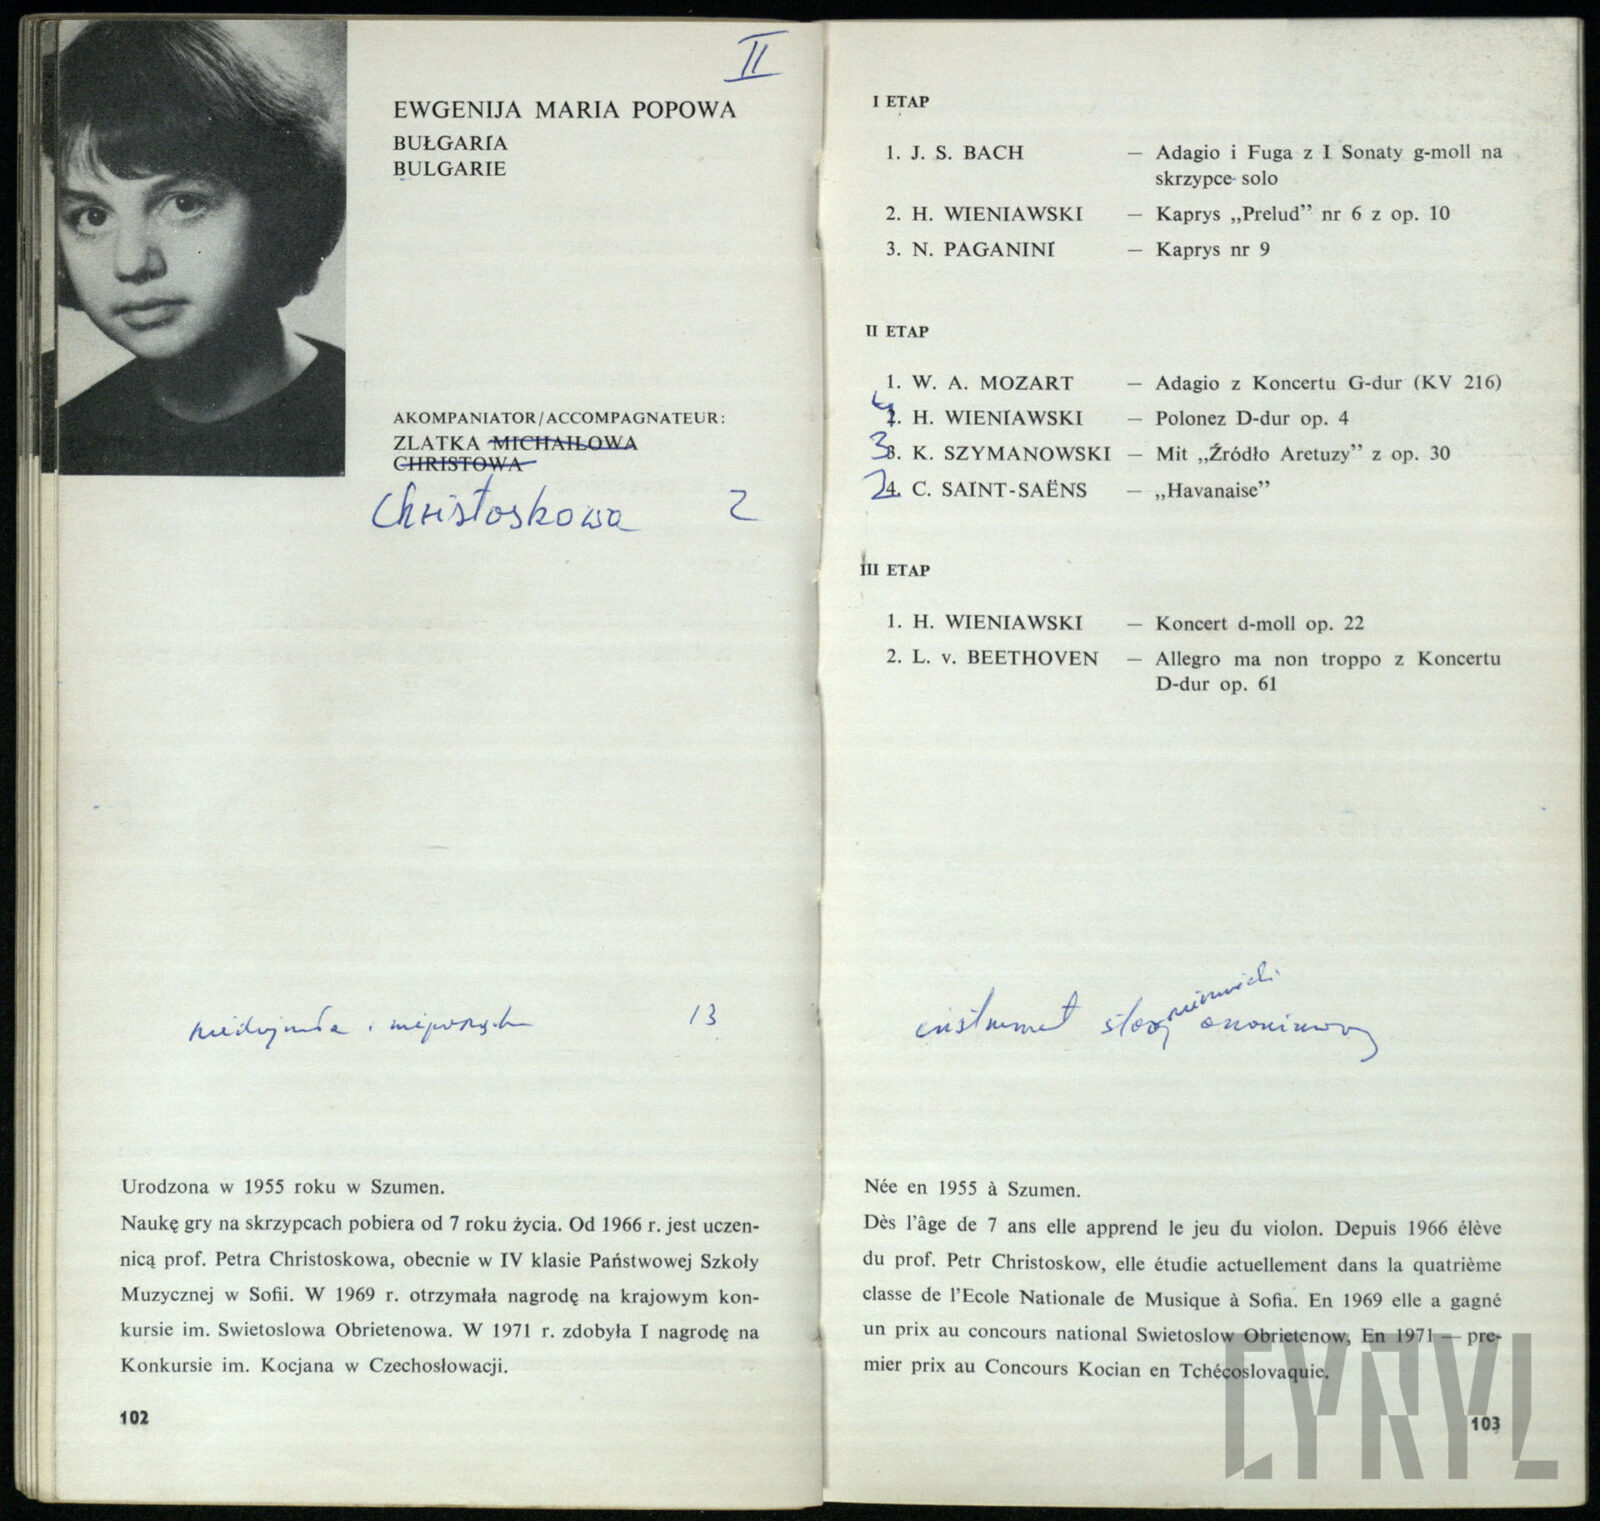 II
EWGENIJA MARIA POPOWA
BUŁGARIA
BULGARIE
AKOMPANIATOR/ACCOMPAGNATEUR:
ZLATKA MICHAIŁOWA
CHRISTOWA
Christoskowa 2
13
Urodzona w 1955 roku w Szumen.
Naukę gry na skrzypcach pobiera od 7 roku życia. Od 1966 r. jest uczen-
nicą prof. Petra Christoskowa, obecnie w IV klasie Państwowej Szkoły
Muzycznej w Sofii. W 1969 r. otrzymała nagrodę na krajowym kon-
kursie im. Swietoslowa Obrietenowa. W 1971 r. zdobyła I nagrodę na
Konkursie im. Kocjana w Czechosłowacji.
102
I ETAP
1. J. S. BACH — Adagio i Fuga z I Sonaty g-moll na
skrzypce solo
2. H. WIENIAWSKI — Kaprys „Prelud” nr 6 z op. 10
3. N. PAGANINI — Kaprys nr 9
II ETAP
1. W. A. MOZART — Adagio z Koncertu G-dur (KV 216)
4 2. H. WIENIAWSKI — Polonez D-dur op. 4
3 3. K. SZYMANOWSKI — Mit „Źródło Aretuzy” z op. 30
2 4. C. SAINT-SAËNS — „Havanaise”
III ETAP
1. H. WIENIAWSKI — Koncert d-moll op. 22
2. L. v. BEETHOVEN — Allegro ma non troppo z Koncertu
D-dur op. 61
instrument stary anonimowy
Née en 1955 à Szumen.
Dès l’âge de 7 ans elle apprend le jeu du violon. Depuis 1966 élève
du prof. Petr Christoskow, elle étudie actuellement dans la quatrième
classe de l’Ecole Nationale de Musique à Sofia. En 1969 elle a gagné
un prix au concours national Swietoslow Obrietenow, En 1971 — pre-
mier prix au Concours Kocian en Tchécoslovaquie.
103
CYRYL